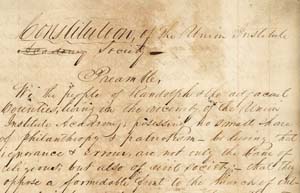 Constitution, of the Union Institute
Academy Society
Preamble,
We the people of Randolph &c adjacent
Counties, living in the vicinity of the Union
Institute Academy; possessing no small share
of philanthropy & patriotism believing that
ignorance & error are not only the bane of
religious, but also of civil society; that they
oppose a formidable front to the march of the